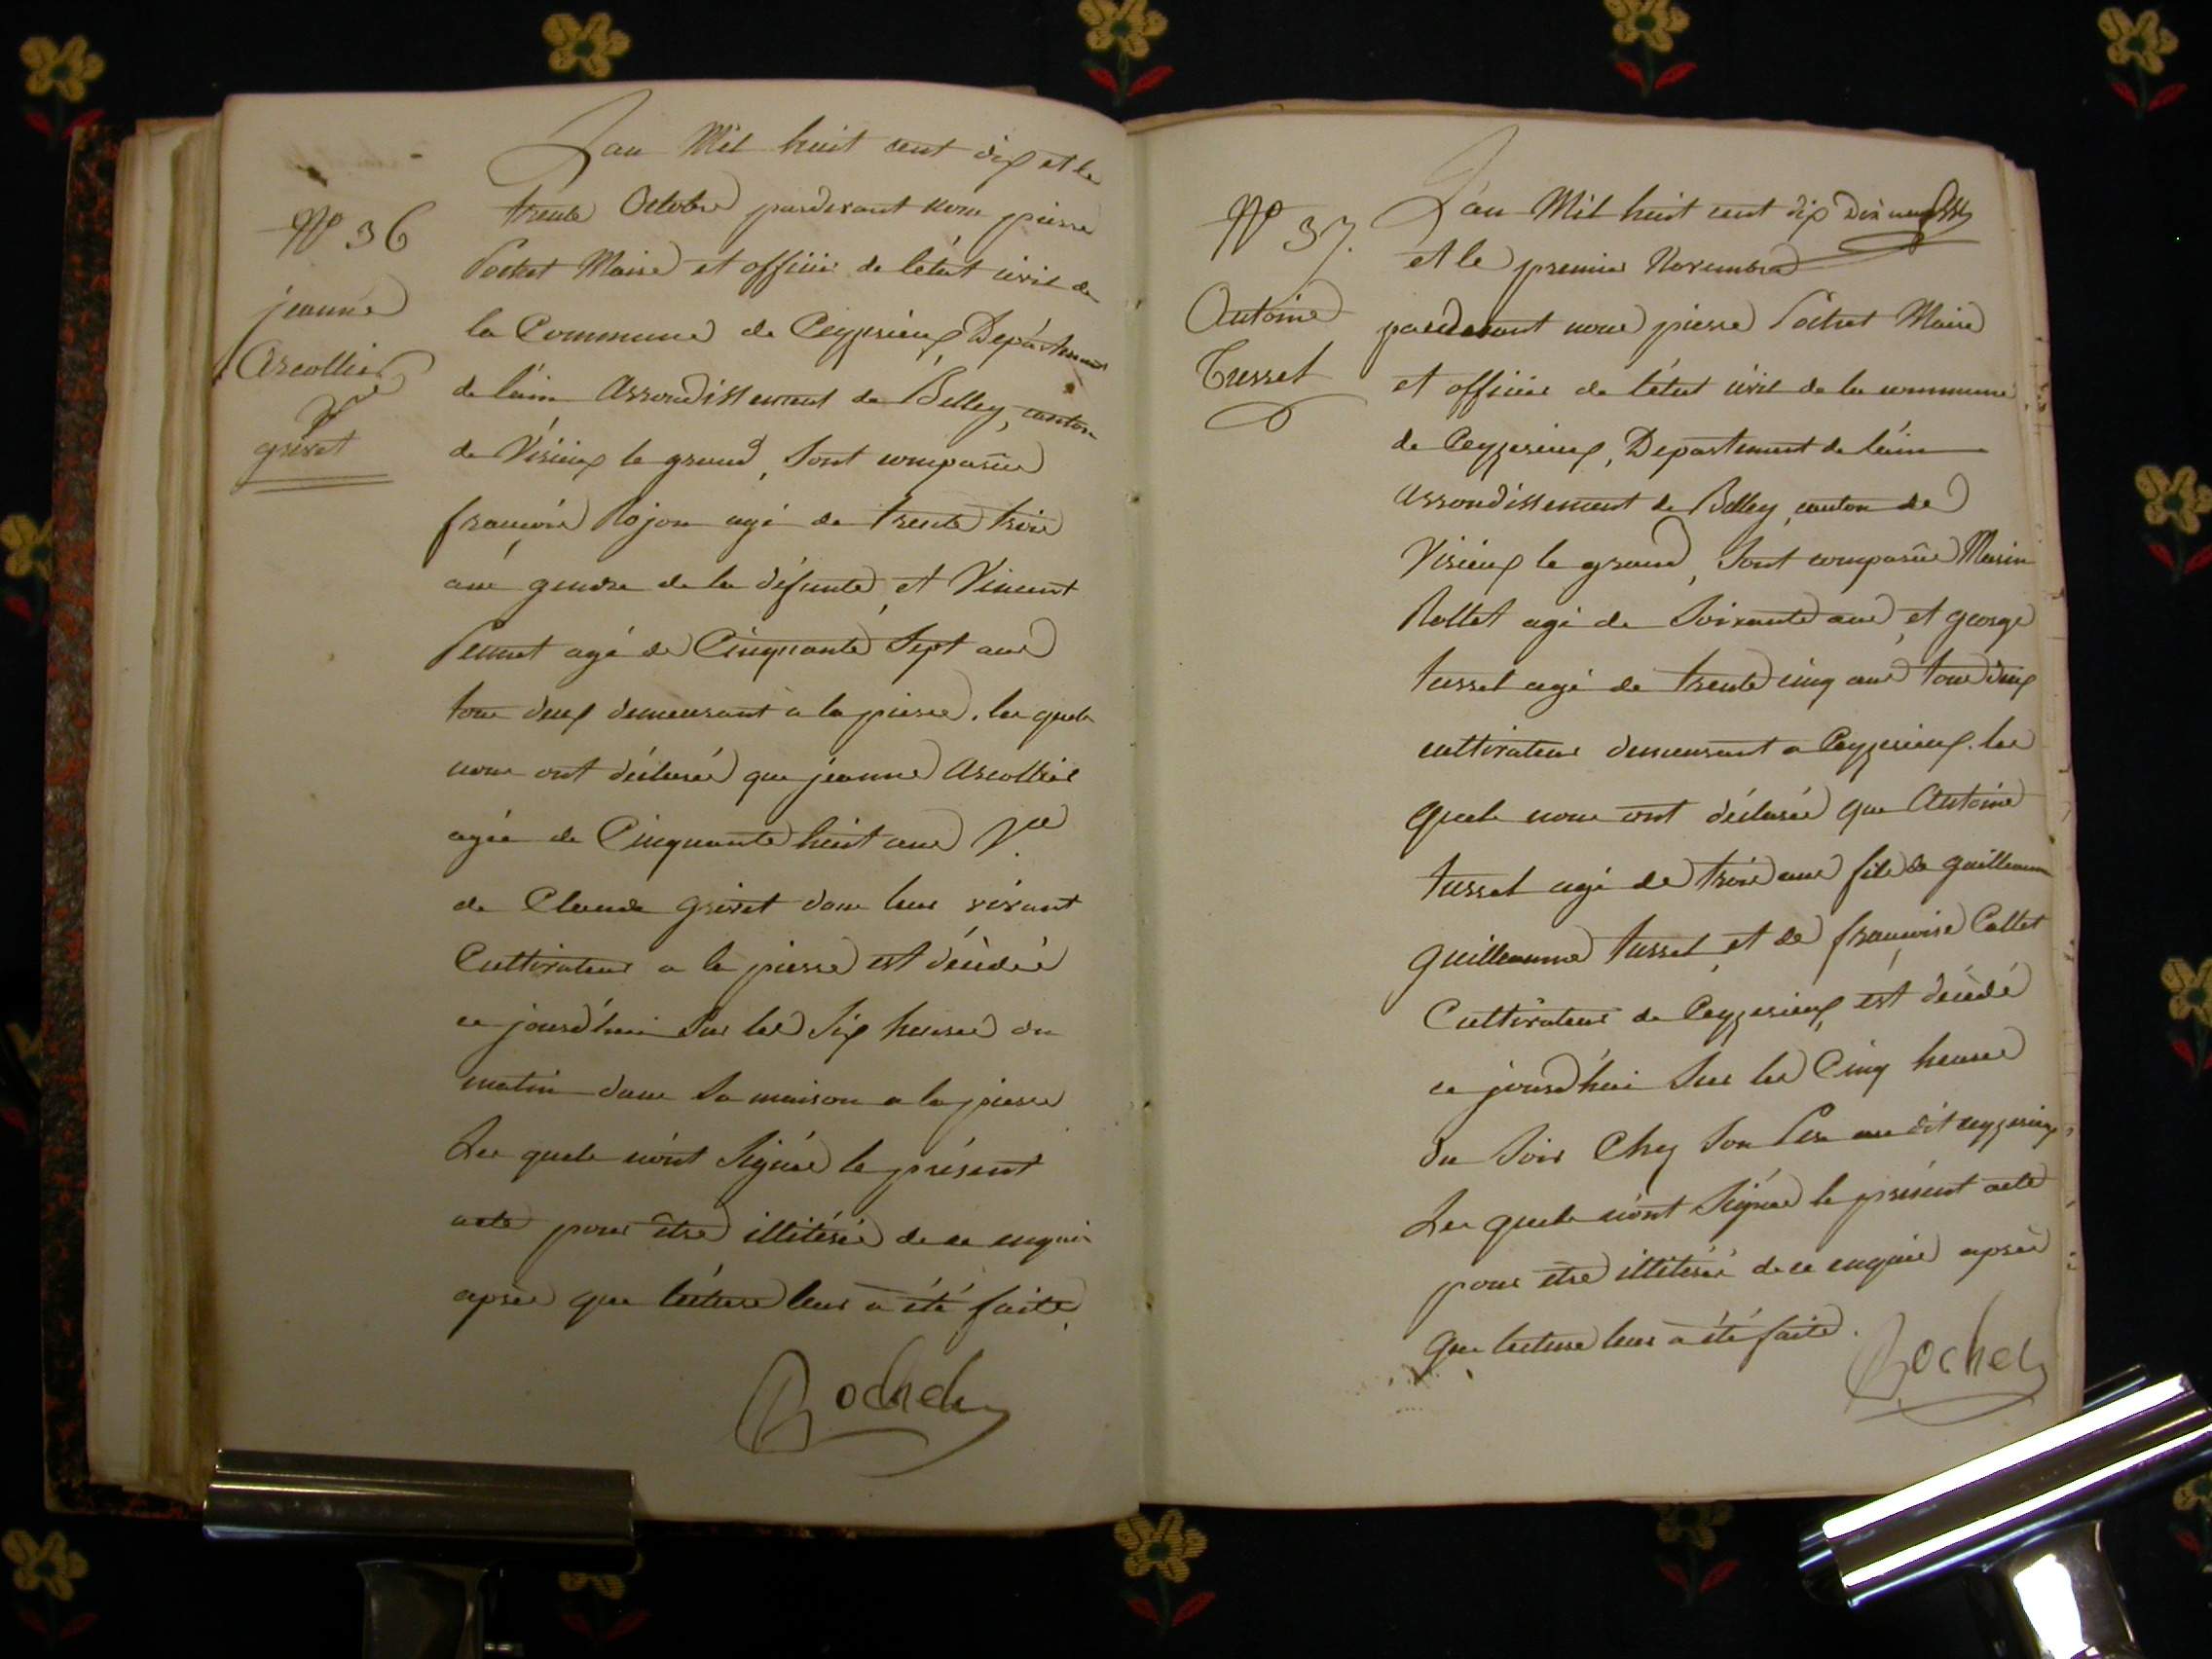 N° 36
jeanne
Arcollier
Vve
grivet
L'an Mil huit cent dix et le
trente Octobre pardevant nous pierre
Pochet Maire et officier de l'état civil de
la Commune de Ceyzerieux, Département
de l'ain Arrondissement de Belley, canton
de Virieux le grand, Sont comparûs
françois Rojon agé de trente trois
ans gendre de la défunte, et Vincent
agé de Cinquante Sept ans
tous deux demeurant a la pierre. les quels
nous ont déclarés que jeanne Arcollier
agée de Cinquante huit ans Vve
de Claude grivet dans leur vivant
Cultivateur a la pierre est décédée
ce jourd'hui Sur les Six heures du
matin dans Sa maison a la pierre
Les quels n'ont Signés le présent
acte pour être illitérés de ce enquis
après que lecture leur a été faite.
Pochet
N° 37.
Antoine
Tusset
L'an Mil huit cent dix
et le premier Novembre
pardevant nous pierre Pochet Maire
et officier de l'état civil de la commune
de Ceyzerieux, Departement de l'ain
Arrondissement de Belley, canton de
Virieux le grand, Sont comparûs Marin
Rollet agé de Soixante ans, et george
tusset agé de trente cinq ans tous deux
cultivateurs demeurant a Ceyzerieux. les
quels nous ont déclarés que Antoine
tusset agé de trois ans fils de guillaume
guillaume tusset, et de françoise Collet
Cultivateurs de Ceyzerieux, est décédé
ce jourd'hui Sur les Cinq heures
du Soir Chez Son Pere au dit ceyzerieux
Les quels n'ont Signés le présent acte
pour être illitérés de ce enquis après
que lecture leur a été faite.
Pochet